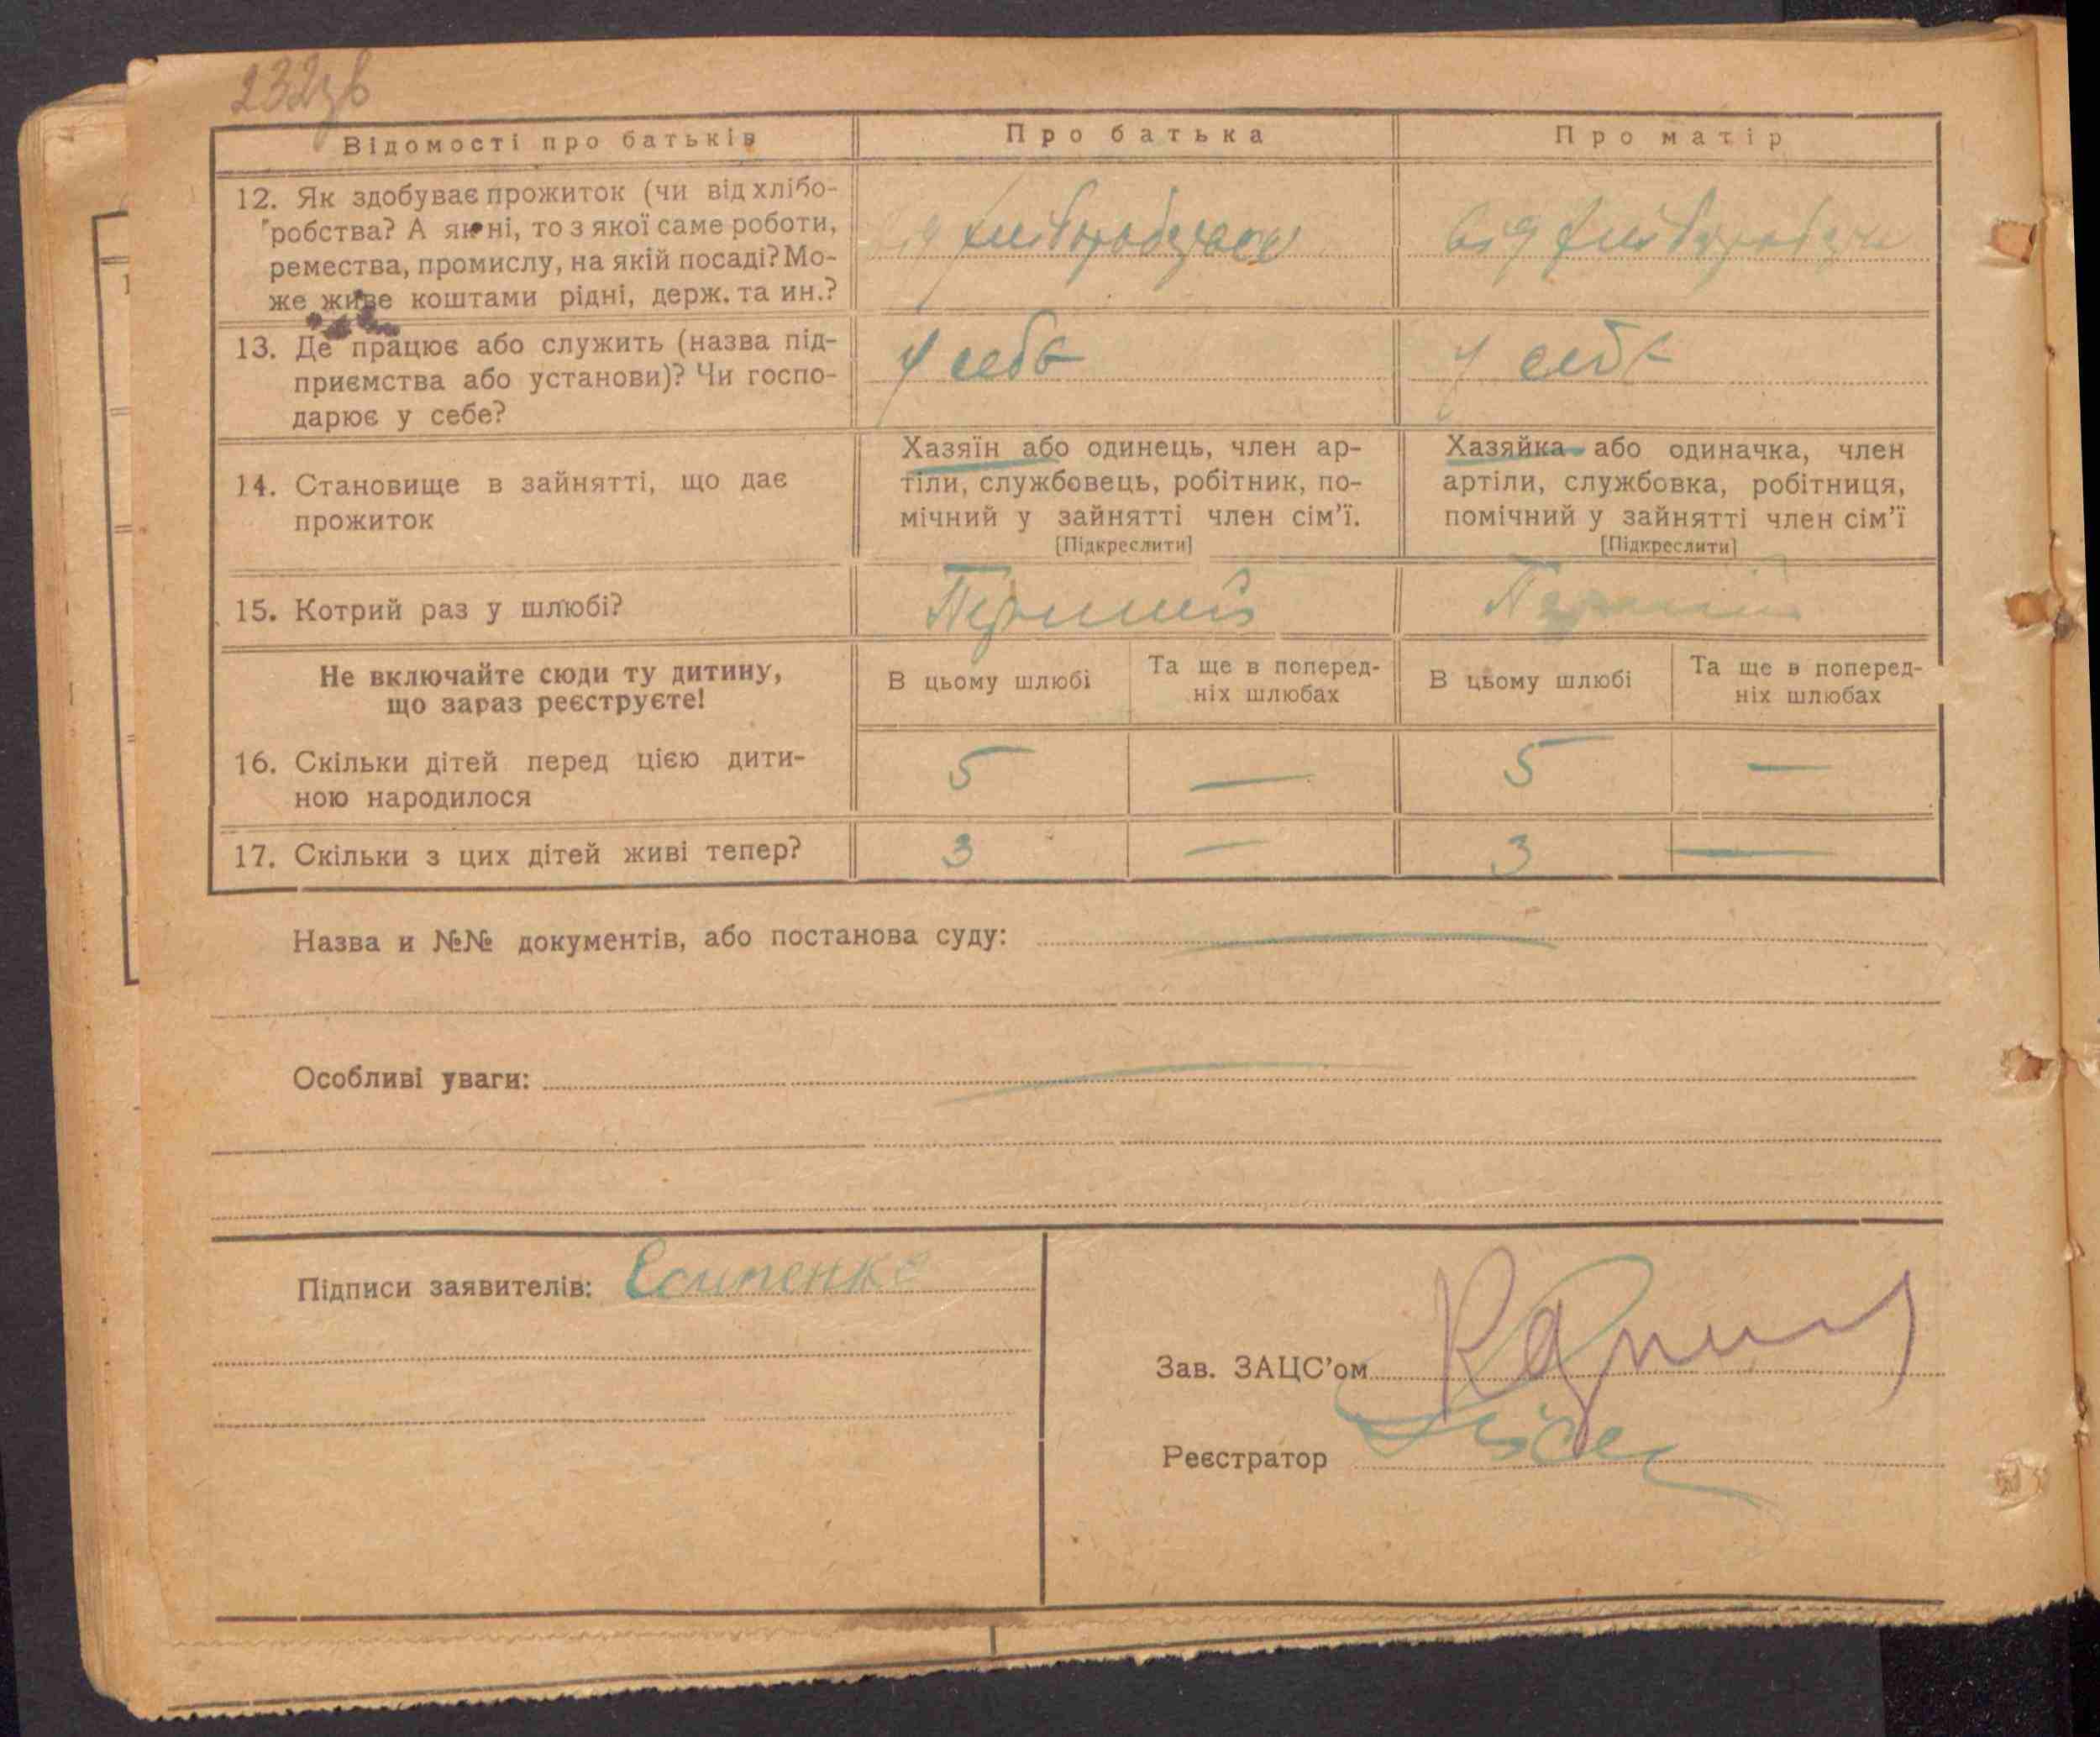 232зв
Відомості про батьків
Про батька
Про матір
12. Як здобуває прожиток (чи від хлібо-
робства? А як ні, то з якої саме роботи,
ремества, промислу, на якій посаді? Мо-
же живе коштами рідні, держ. та ин.?
від хліборобства
від хліборобства
13. Де працює або служить (назва під-
приємства або установи)? Чи госпо-
дарює у себе?
у себе
у себе
14. Становище в зайнятті, що дає
прожиток
Хазяїн або одинець, член ар-
тіли, службовець, робітник, по-
мічний у зайнятті член сім'ї.
[Підкреслити]
Хазяйка або одиначка, член
артіли, службовка, робітниця,
помічний у зайнятті член сім'ї
[Підкреслити]
15. Котрий раз у шлюбі?
Перший
Перший
Не включайте сюди ту дитину,
що зараз реєструєте!
В цьому шлюбі
Та ще в поперед-
ніх шлюбах
В цьому шлюбі
Та ще в поперед-
ніх шлюбах
16. Скільки дітей перед цією дити-
ною народилося
5 — 5 —
17. Скільки з цих дітей живі тепер?
3 — 3 —
Назва и №№ документів, або постанова суду: —
Особливі уваги: —
Підписи заявителів: Єсипенко
Зав. ЗАЦС'ом
Реєстратор